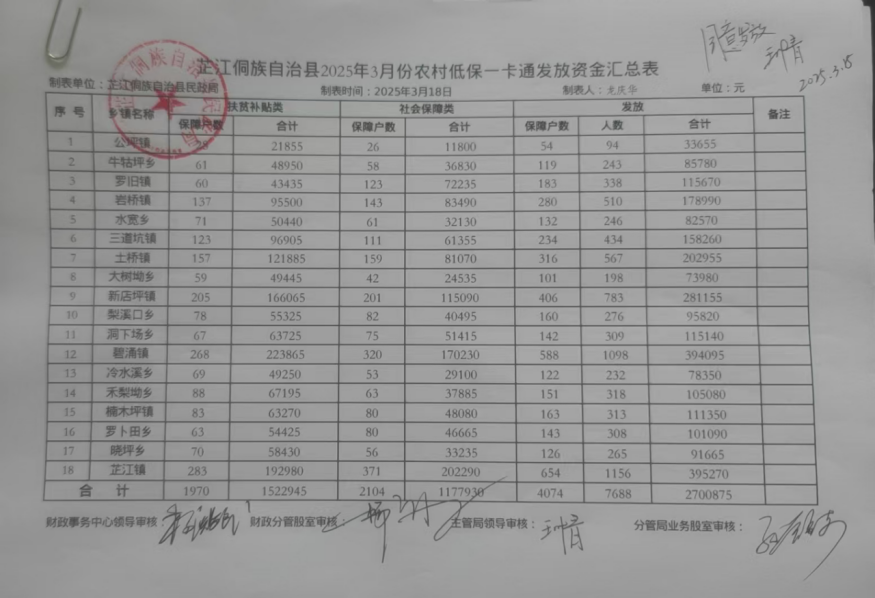 同意发放
2025.3.18
芷江侗族自治县2025年3月份农村低保一卡通发放资金汇总表
制表单位：芷江侗族自治县民政局 制表时间：2025年3月18日 制表人：龙庆华 单位：元
序号 乡镇名称 扶贫补贴类 社会保障类 发放 备注
保障户数 合计 保障户数 合计 保障户数 人数 合计
1 公坪镇 28 21855 26 11800 54 94 33655
2 牛牯坪乡 61 48950 58 36830 119 243 85780
3 罗旧镇 60 43435 123 72235 183 338 115670
4 岩桥镇 137 95500 143 83490 280 510 178990
5 水宽乡 71 50440 61 32130 132 246 82570
6 三道坑镇 123 96905 111 61355 234 434 158260
7 土桥镇 157 121885 159 81070 316 567 202955
8 大树坳乡 59 49445 42 24535 101 198 73980
9 新店坪镇 205 166065 201 115090 406 783 281155
10 梨溪口乡 78 55325 82 40495 160 276 95820
11 洞下场乡 67 63725 75 51415 142 309 115140
12 碧涌镇 268 223865 320 170230 588 1098 394095
13 冷水溪乡 69 49250 53 29100 122 232 78350
14 禾梨坳乡 88 67195 63 37885 151 318 105080
15 楠木坪镇 83 63270 80 48080 163 313 111350
16 罗卜田乡 63 54425 80 46665 143 308 101090
17 晓坪乡 70 58430 56 33235 126 265 91665
18 芷江镇 283 192980 371 202290 654 1156 395270
合 计 1970 1522945 2104 1177930 4074 7688 2700875
财政事务中心领导审核： 财政分管股室审核： 主管局领导审核： 分管局业务股室审核：